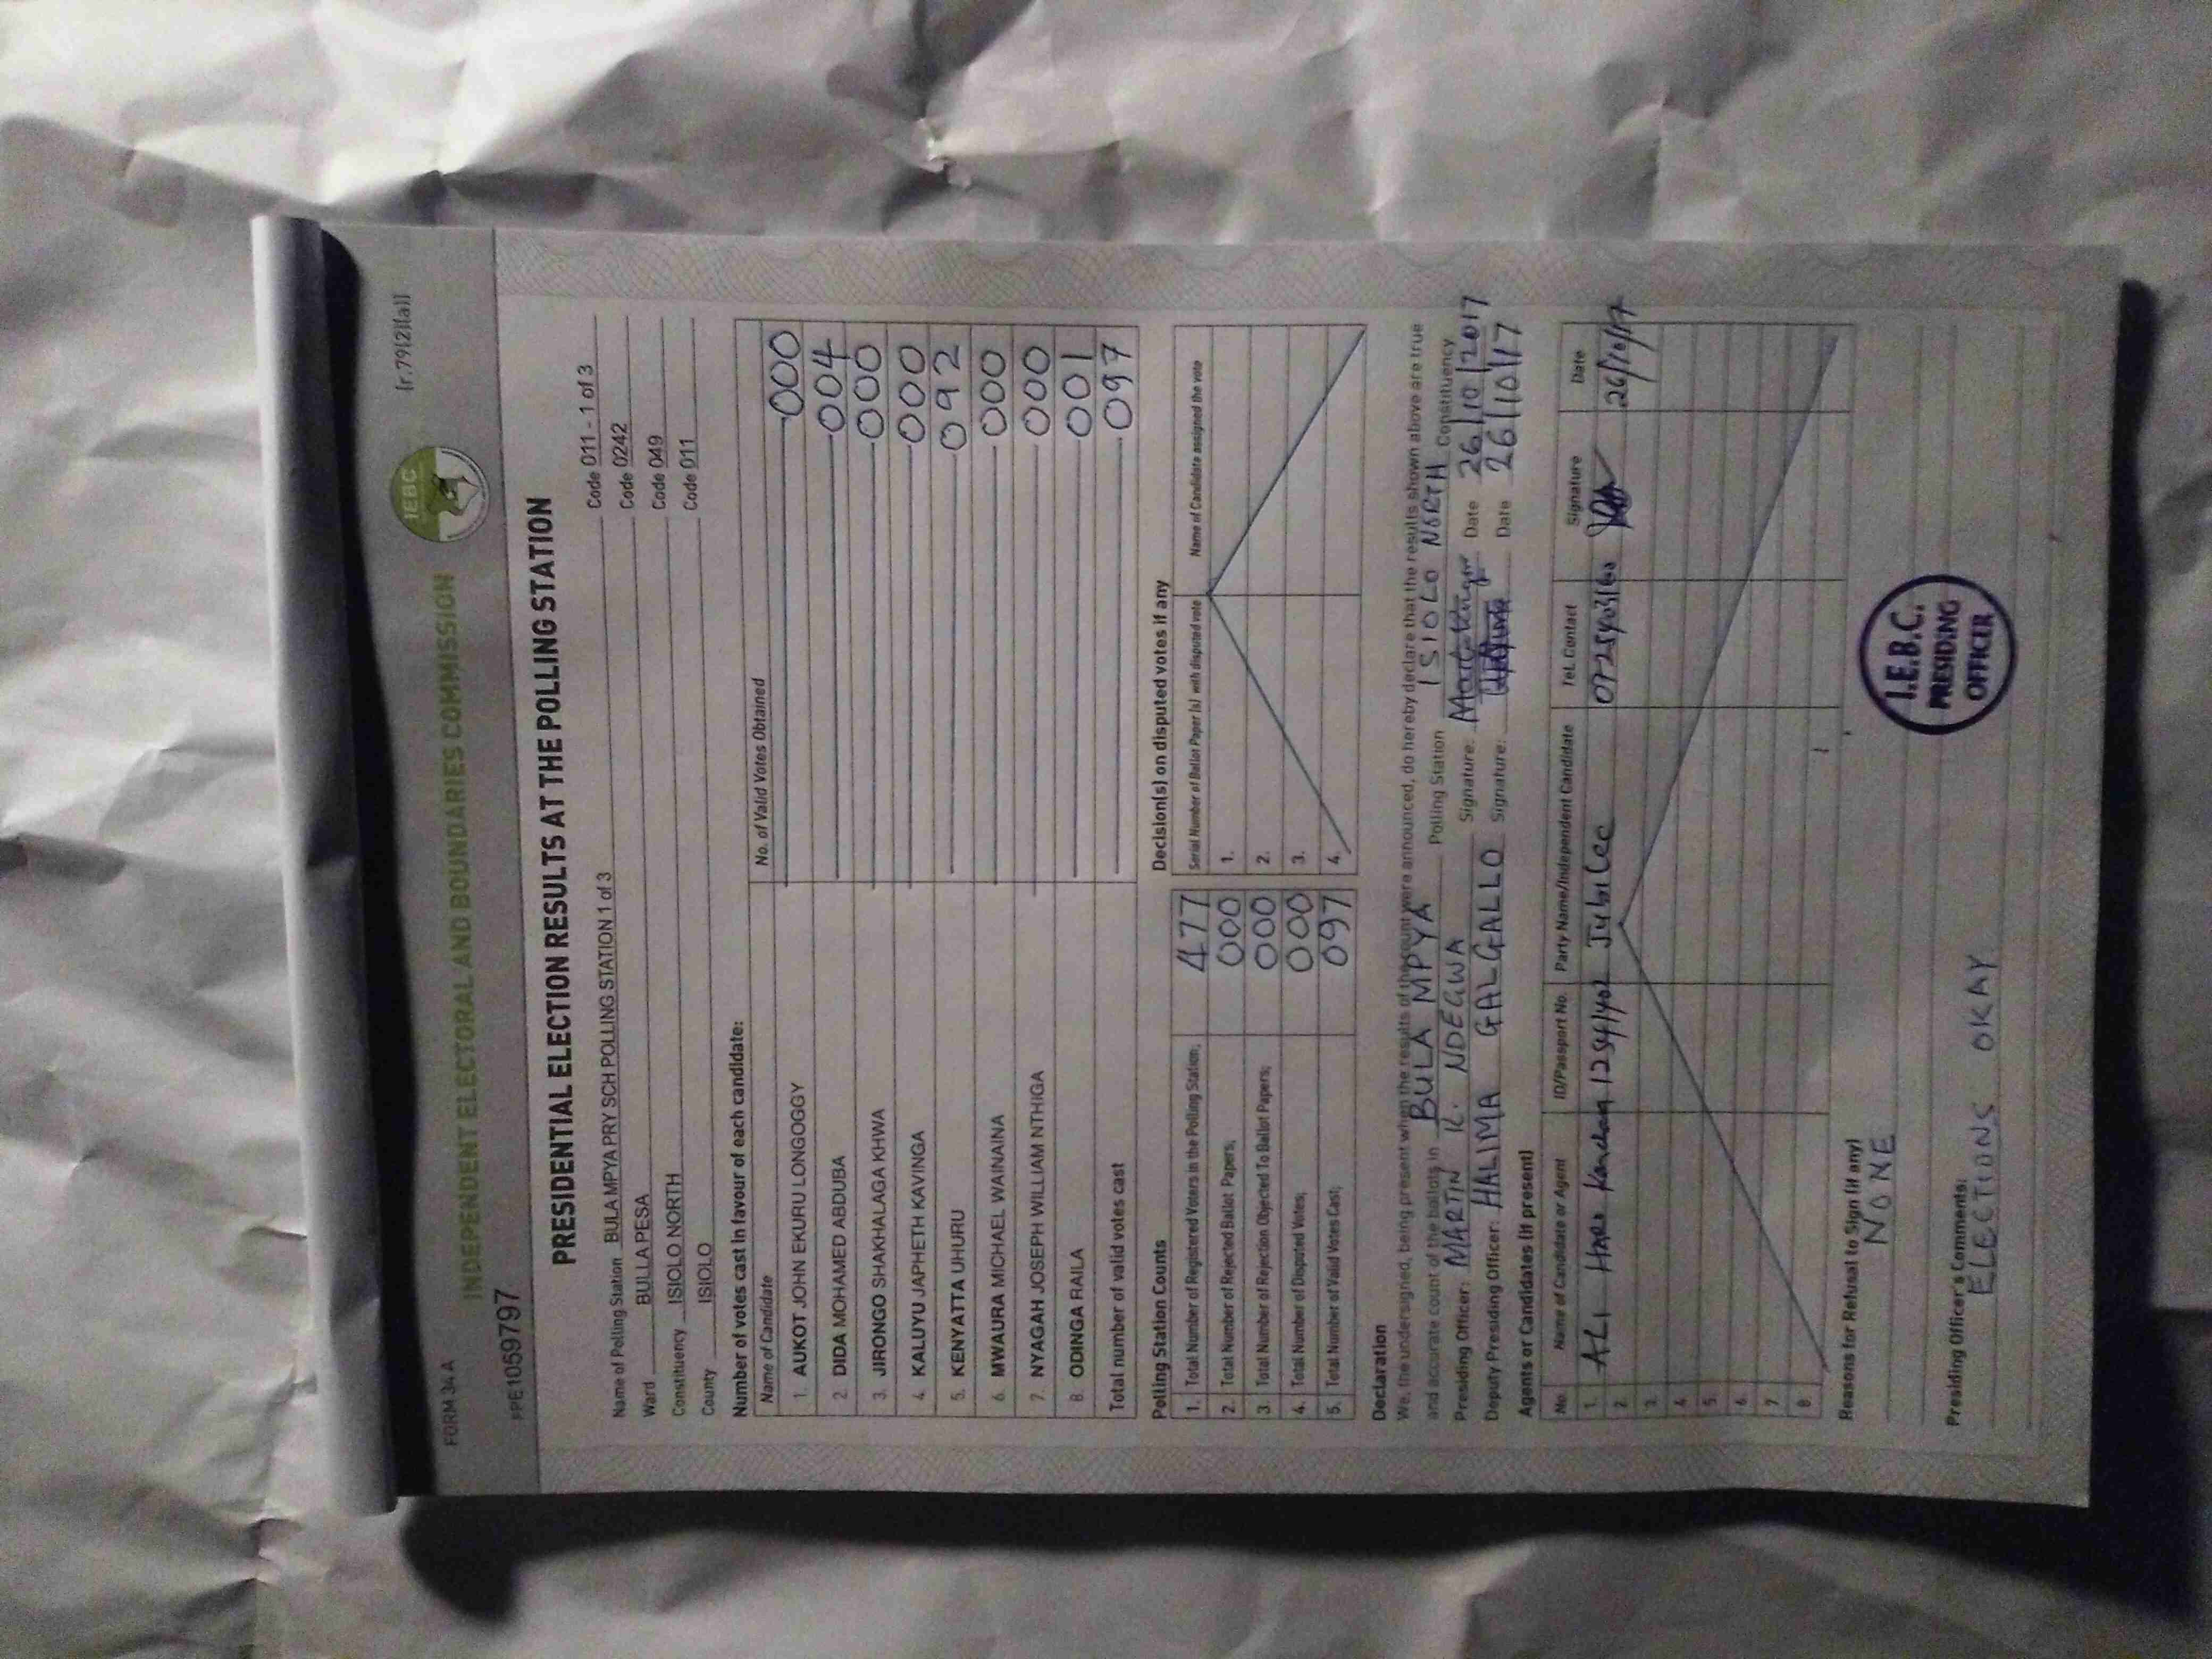 FORM 34A
[r.79(2)(a)]
INDEPENDENT ELECTORAL AND BOUNDARIES COMMISSION
IEBC
PPE1059797
PRESIDENTIAL ELECTION RESULTS AT THE POLLING STATION
Name of Polling Station BULA MPYA PRY SCH POLLING STATION 1 of 3 Code 011 - 1 of 3
Ward BULLA PESA Code 0242
Constituency ISIOLO NORTH Code 049
County ISIOLO Code 011
Number of votes cast in favour of each candidate:
Name of Candidate No. of Valid Votes Obtained
1. AUKOT JOHN EKURU LONGOGGY 000
2. DIDA MOHAMED ABDUBA 004
3. JIRONGO SHAKHALAGA KHWA 000
4. KALUYU JAPHETH KAVINGA 000
5. KENYATTA UHURU 092
6. MWAURA MICHAEL WAINAINA 000
7. NYAGAH JOSEPH WILLIAM NTHIGA 000
8. ODINGA RAILA 001
Total number of valid votes cast 097
Polling Station Counts
1. Total Number of Registered Voters in the Polling Station; 477
2. Total Number of Rejected Ballot Papers; 000
3. Total Number of Rejection Objected To Ballot Papers; 000
4. Total Number of Disputed Votes; 000
5. Total Number of Valid Votes Cast; 097
Decision(s) on disputed votes if any
Serial Number of Ballot Paper (s) with disputed vote Name of Candidate assigned the vote
1.
2.
3.
4.
Declaration
We, the undersigned, being present when the results of the count were announced, do hereby declare that the results shown above are true
and accurate count of the ballots in BULA MPYA Polling Station ISIOLO NORTH Constituency
Presiding Officer: MARTIN K. NDEGWA Signature: Date 26/10/2017
Deputy Presiding Officer: HALIMA GALGALLO Signature: Date 26/10/17
Agents or Candidates (if present)
No. Name of Candidate or Agent ID/Passport No. Party Name/Independent Candidate Tel. Contact Signature Date
1. ALI Jubilee 26/10/17
2.
3.
4.
5.
6.
7.
8.
Reasons for Refusal to Sign (if any)
NONE
Presiding Officer's Comments:
ELECTIONS OKAY
I.E.B.C.
PRESIDING
OFFICER